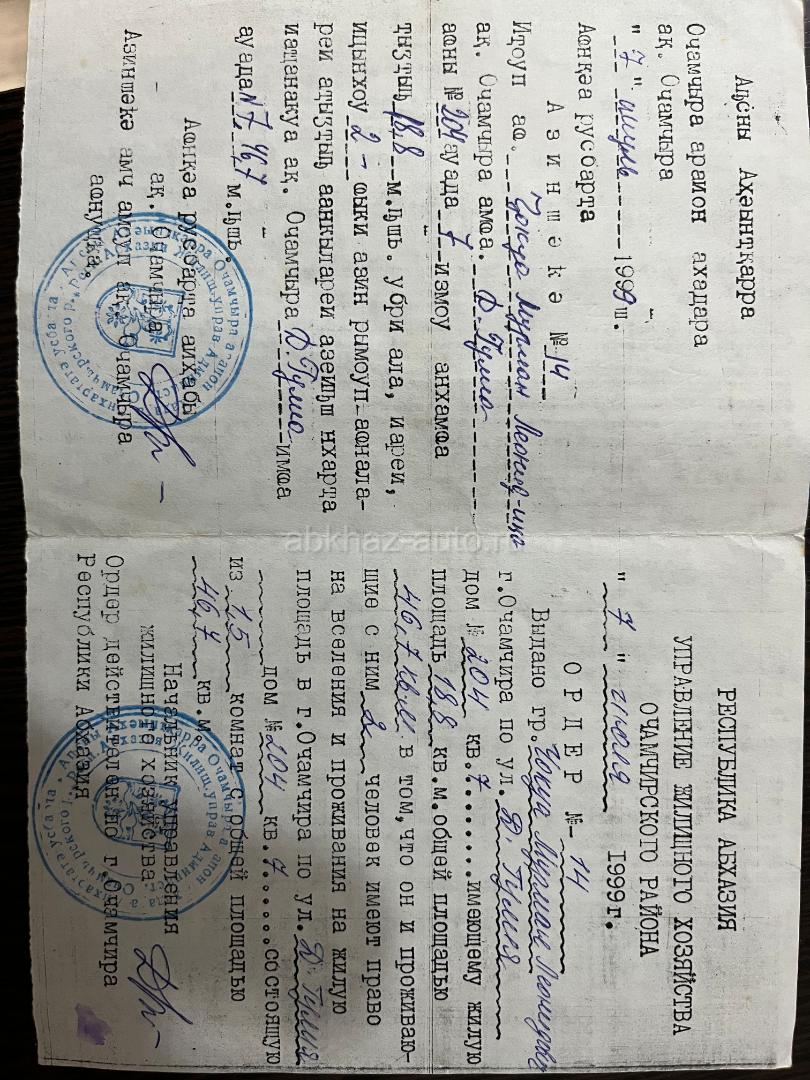 Аԥсны Аҳәынҭқарра
Очамчыра араион ахадара
ақ. Очамчыра
"7" ииуль 1999 ш.
Аҩнқәа русбарҭа
Азиншәҟә № 14
Иҭоуп аҩ. Цокуа Мурман Леонид-иҧа
ақ. Очамчыра амҩа. Д. Гулиа
аҩны № 204 ауада 7 измоу анхамҩа
ҭыӡҭыԥ 18.8 м.ԥшь. убри ала, иареи,
ицынхоу 2 - ҩыки азин рымоуп-аҩнала-
реи аҭыӡҭыԥ аанкылареи азеиԥш нхарҭа
иаҵанакуа ақ. Очамчыра Д. Гулиа имҩа
ауада № 7 46,7 м.ԥшь.
Аҩнқәа русбарҭа аихабы
ақ. Очамчыра
Азиншәҟә амч амоуп ақ. Очамчыра
аҩнуҵҟа.
abkhaz-auto.ru
РЕСПУБЛИКА АБХАЗИЯ
УПРАВЛЕНИЕ ЖИЛИЩНОГО ХОЗЯЙСТВА
ОЧАМЧИРСКОГО РАЙОНА
"7" июля 1999г.
ОРДЕР №- 14
Выдано гр. Чокуа Мурман Леонидович
г.Очамчира по ул. Д. Гулия
дом № 204 кв. 7........имеющему жилую
площадь 18.8 кв.м.общей площадью
46,7 кв.м в том,что он и проживаю-
щие с ним 2 человек имеют право
на вселения и проживания на жилую
площадь в г.Очамчира по ул. Д. Гулия
дом № 204 кв. 7......состоящую
из 1.5 комнат с общей площадью
46.7 кв.м.
Начальник управления
жилищного хозяйства.
Ордер действителен по г.Очамчира
Республики Абхазия